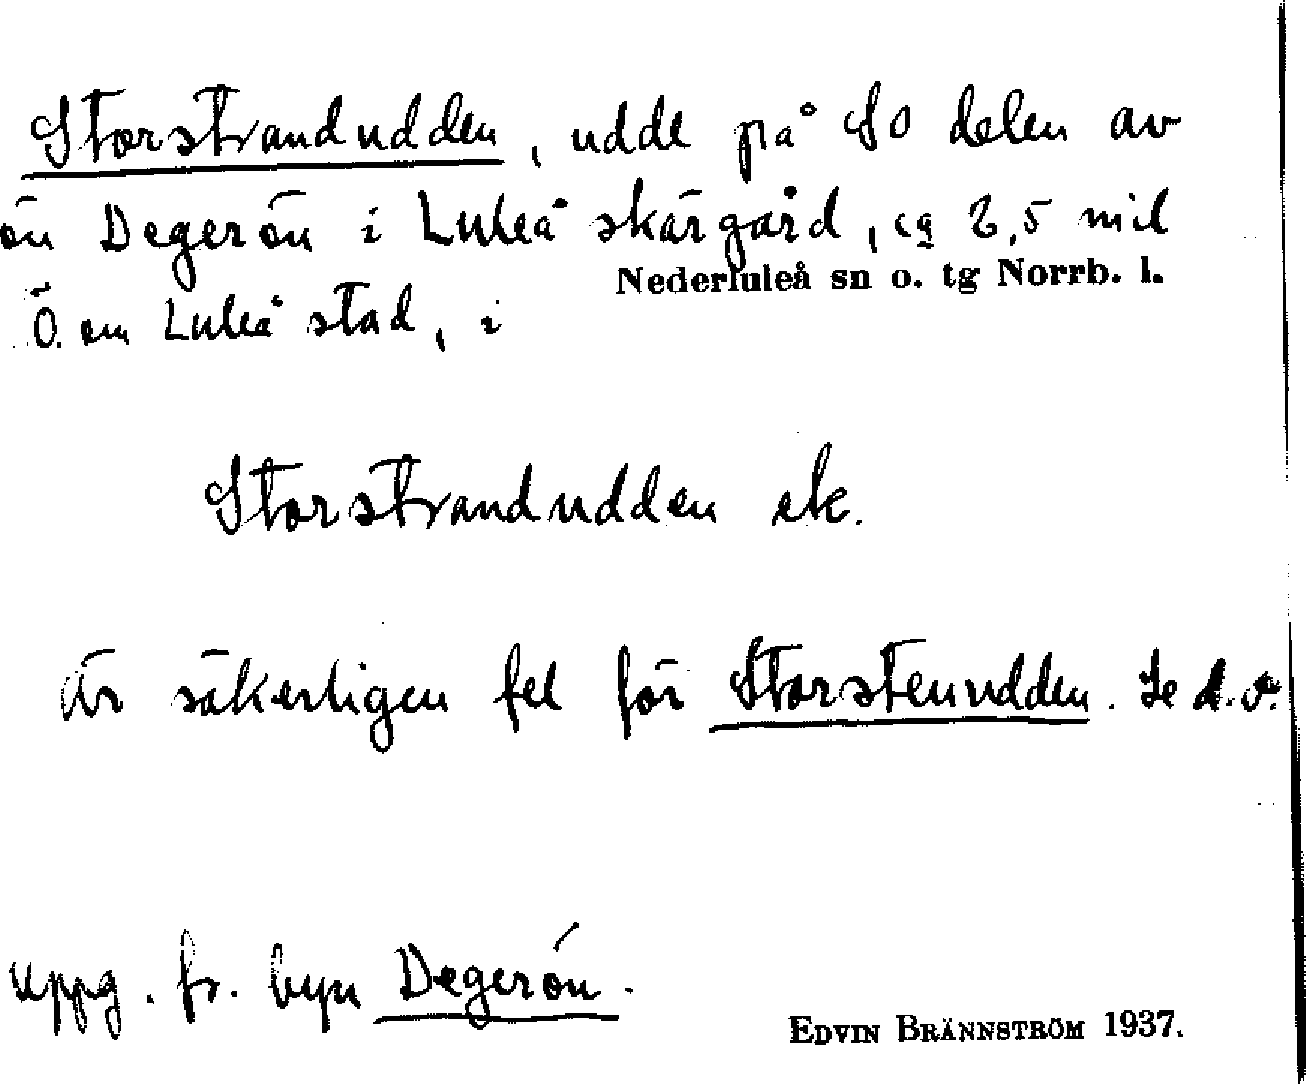 Storstrandudden, udde på SO delen av
ön Degerön i Luleå skärgård, ca 2,5 mil
Nederluleå sn o. tg Norrb. l.
Ö. om Luleå stad, i
Storstrandudden ek.
Är säkerligen fel för Storstenudden. Se d.o.
Uppg. fr. byn Degerön.
EDVIN BRÄNNSTRÖM 1937.